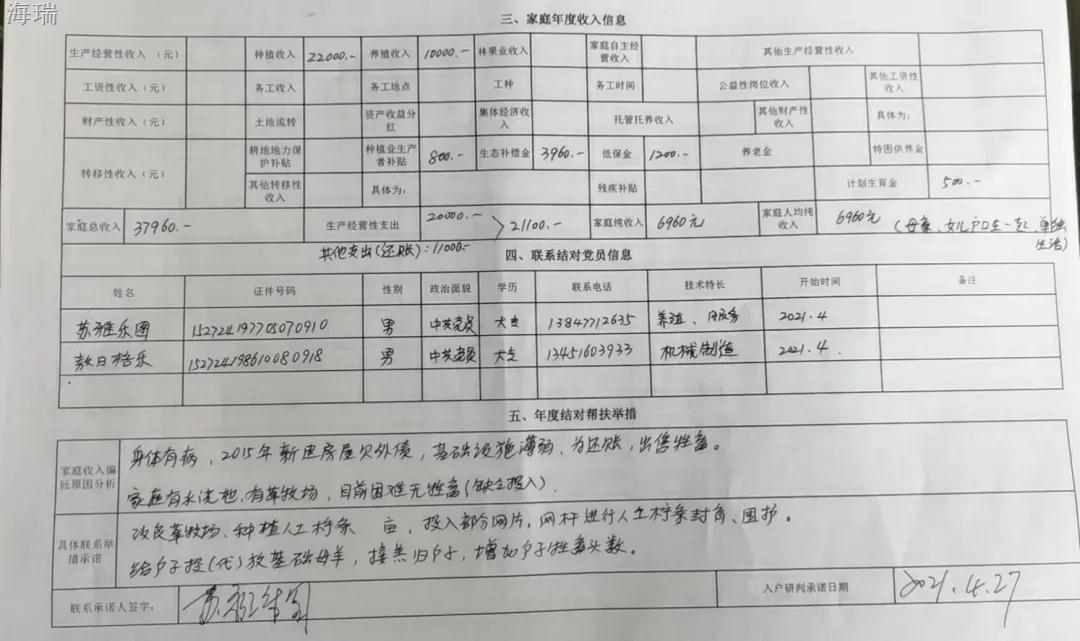 海瑞
三、家庭年度收入信息
生产经营性收入（元） 种植收入 22000.- 养殖收入 10000.- 林果业收入 家庭自主经营收入 其他生产经营性收入
工资性收入（元） 务工收入 务工地点 工种 务工时间 公益性岗位收入 其他工资性收入
财产性收入（元） 土地流转 资产收益分红 集体经济收入 托管托养收入 其他财产性收入 具体为：
转移性收入（元） 耕地地力保护补贴 种植业生产者补贴 800.- 生态补偿金 3960.- 低保金 1200.- 养老金 特困供养金
其他转移性收入 具体为： 残疾补贴 计划生育金 500.-
家庭总收入 37960.- 生产经营性支出 20000.- 21100.- 家庭纯收入 6960元 家庭人均纯收入 6960元 (母亲、女儿户口在一起，单独生活)
其他支出(还账)：11000.-
四、联系结对党员信息
姓名 证件号码 性别 政治面貌 学历 联系电话 技术特长 开始时间 备注
苏雅乐图 152724197705070910 男 中共党员 大专 13847712635 养殖、 2021.4
敖日格乐 152724198610080918 男 中共党员 大专 13451603933 机械制造 2021.4
五、年度结对帮扶举措
家庭收入偏低原因分析 身体有病，2015年新建房屋欠外债，基础设施薄弱，为还账，出售牲畜。
家庭有水浇地，有草牧场，目前困难无牲畜(缺乏投入)
具体联系举措承诺 改良草牧场、种植人工柠条 亩，投入部分网片，网杆进行人工柠条封育、围护。
给户子投(代)放基础母羊，接羔归户子，增加户子牲畜头数。
联系承诺人签字： 入户研判承诺日期 2021.4.27